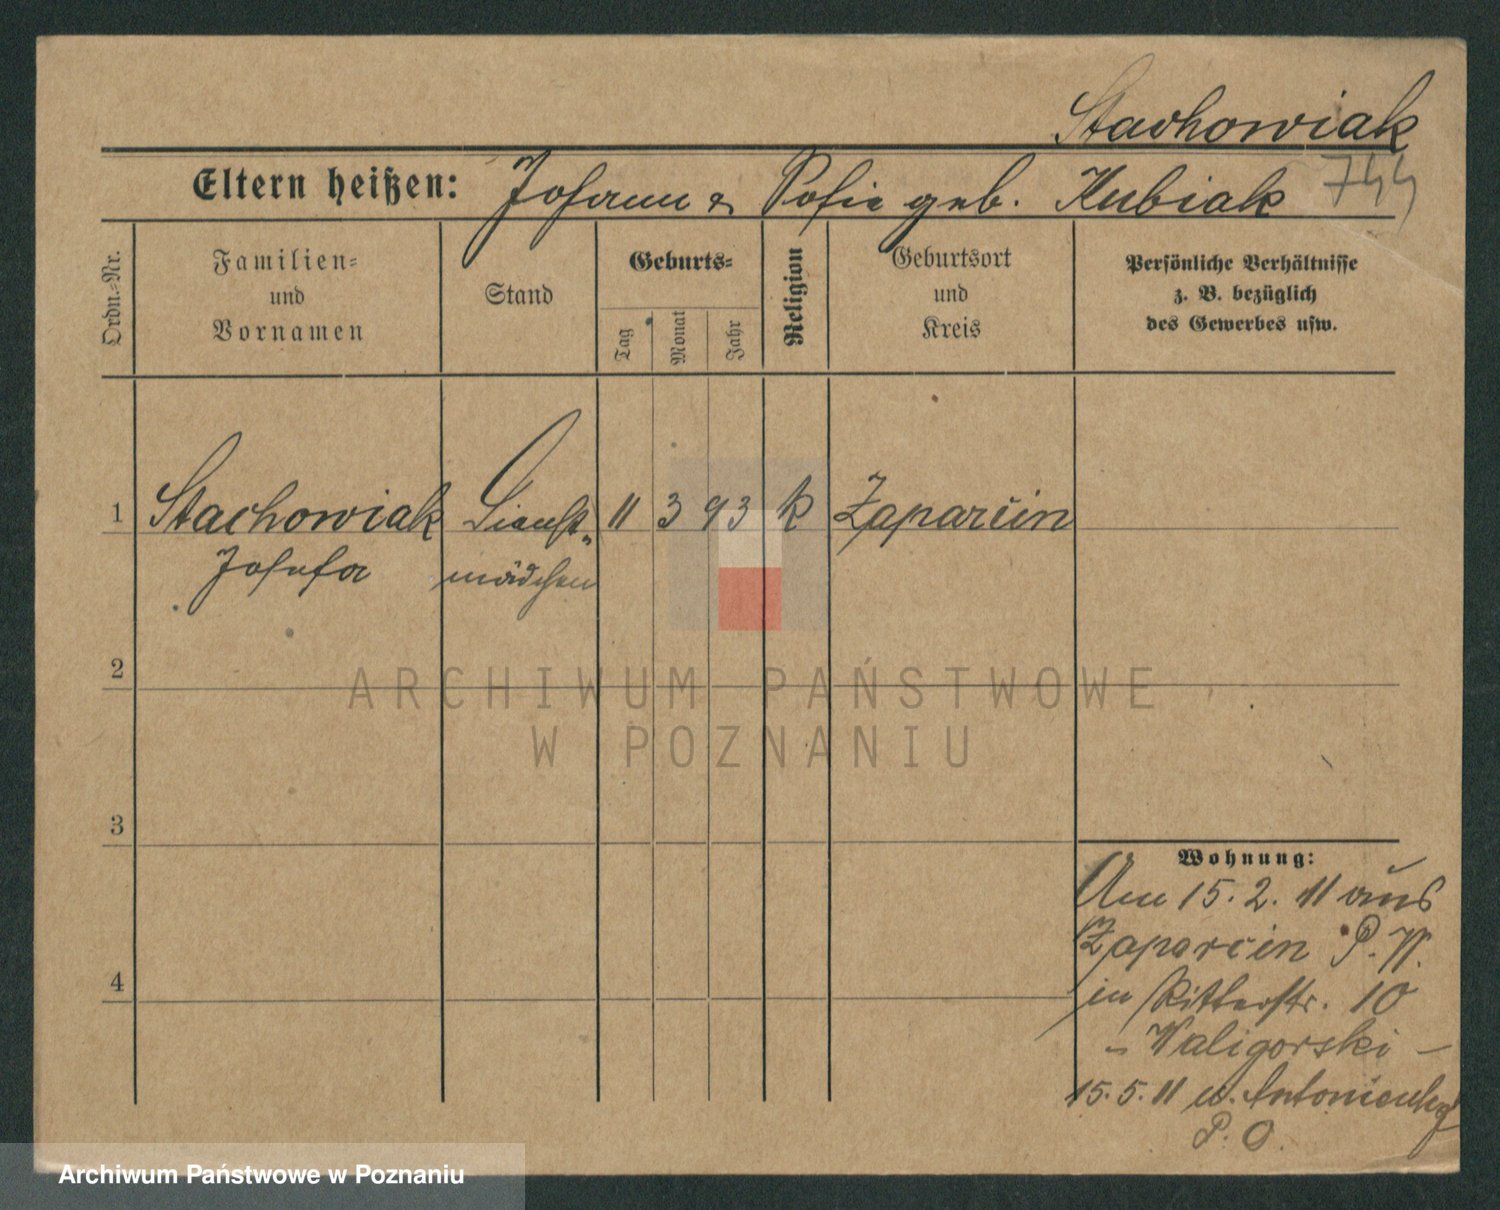 Stachowiak
Eltern heißen: Johann & Sofie geb. Kubiak 744
Ordn.=Nr.
Familien=
und
Vornamen
Stand
Geburts=
Tag
Monat
Jahr
Religion
Geburtsort
und
Kreis
Persönliche Verhältnisse
z. B. bezüglich
des Gewerbes usw.
1 Stachowiak Dienst= 11 3 93 k Zaparcin
Josefa mädchen
2
3
4
Wohnung:
Am 15. 2. 11 aus
Zaparcin P. W.
in Ritterstr. 10
- Waligorski -
15. 5. 11 n.
P. O.
ARCHIWUM PAŃSTWOWE
W POZNANIU
Archiwum Państwowe w Poznaniu